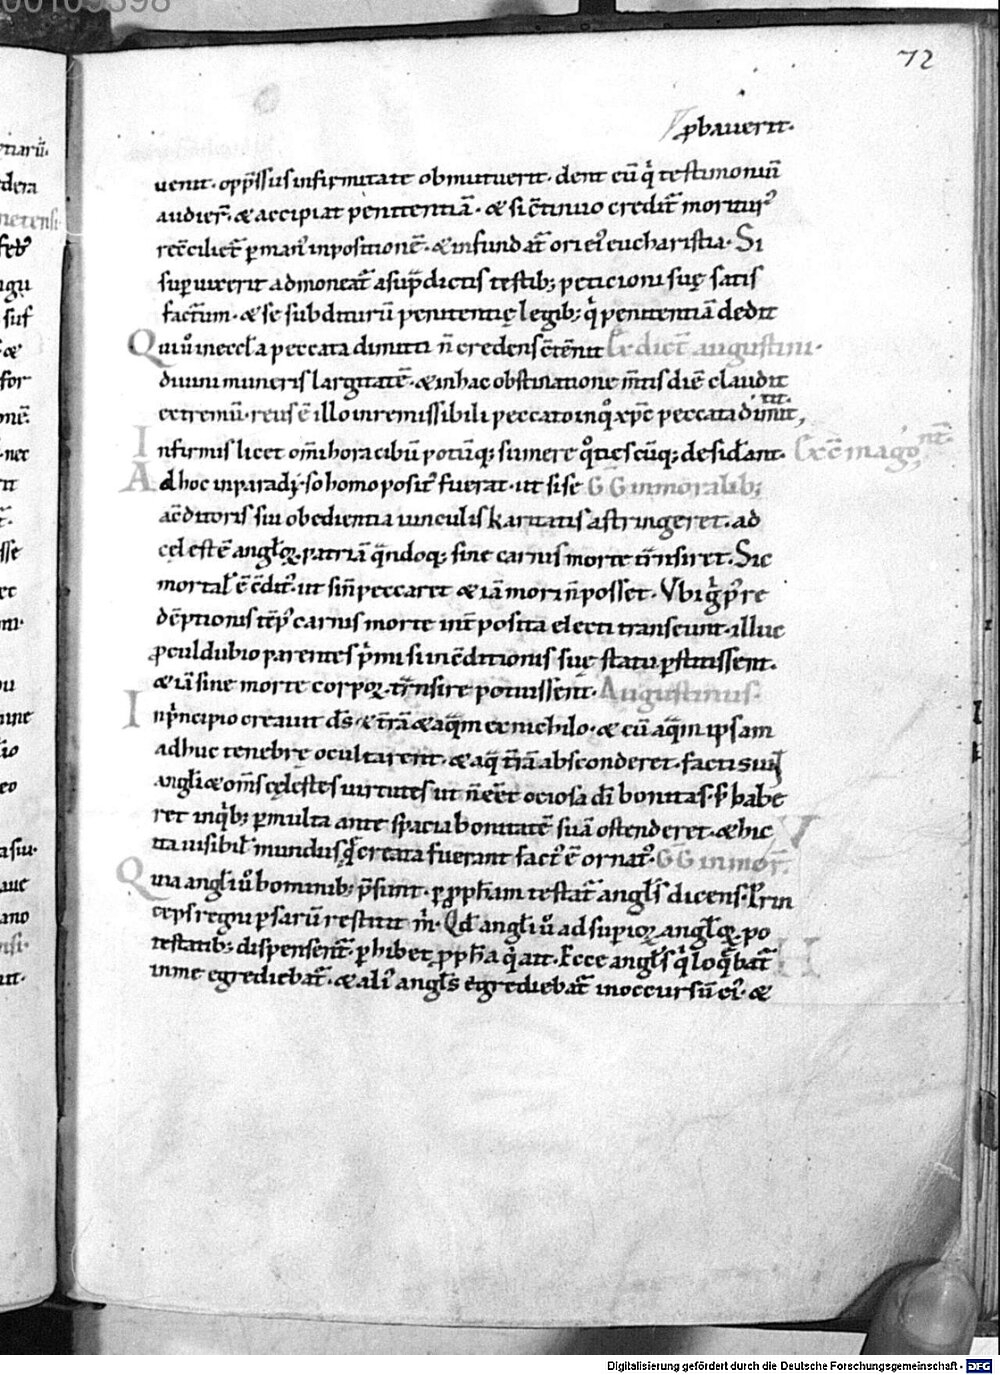 72
ꝓbauerit.
uenit. opp̄ssus infirmitate obmutuerit. dent eū q̇ testimoniū
audier̄. & accipiat penitentiā. & si c̄tinuo credit̄ moritur᷒
rec̄ciliet̄ ꝑ man᷒ inpositionē. & infundat̄ ori ei᷒ eucharistia. Si
suꝑuixerit admoneat̄ a sup̄dictis testib; peticioni suę satis
factum. & se subditurū penitentię legib; q̇ penitentiā dedit
Qui u̇ in eccl̄a peccata dimitti n̄ credens c̄tēnit Ex dict̄ augustini.
diuini muneris largitatē. & in hac obstinatione m̄tis diē claudit
extremū. reus ē illo inremissibili peccato in q̊ xp̄c peccata dimittit,
Infirmis licet om̄i hora cibū potūq; sumere q̊ties cūq; desid̄ant. Ex c̄ magon̄t.
Ad hoc in paradyso homo posit᷒ fuerat. ut si se GG in moralib;
ac̄ditoris sui obedientia uinculis karitatis astringeret. ad
cęlestē anglo̤ꝝ patriā q̄ndoq; sine carnis morte tr̄nsiret. Sic
mortal̄ ē c̄dit᷒. ut si n̄ peccaret & iā mori n̄ posset. Vbi g̊ p᷒ re
dēptionis tēp᷒ carnis morte int̄posita electi transeunt. illuc
ꝓculdubio parentes p̊mi si in c̄ditionis suę statu ꝑstitissent.
& iā sine morte corpoꝝ. tr̄nsire potuissent. Augustinus.
In p̊ncipio creauit ds̄. & t̄rā & aq̄m ex nichilo. & cū aq̄m ipsam
adhuc tenebrę ocultarent. & aq̄ t̄rā absconderet. facti sunt
angl̄i & om̄s cęlestes uirtutes ut n̄ e̊et ociosa dī bonitas. s; habe
ret in q̇b; ꝑ multa ante spacia bonitatē suā ostenderet. & hic V
ita uisibil̄ mundus q̄ creata fuerant fact᷒ ē ornat᷒. GG in mor̄.
Quia angl̄i u̇ hominib; p̄sunt. ꝑ ꝓph̄am testat̄ angl̄s dicens. Prin
ceps regni ꝑsarū restitit m̊. Qd̄ angl̄i u̇ ad supioꝝ angloꝝ. po
testatib; dispensent̄. ꝑhibet ꝓph̄a q̇ ait. Ecce angl̄s q̇ loq̄bat̄ H
in me egrediebat̄. & ali᷒ angl̄s egrediebat̄ in occursū ei᷒. &
Digitalisierung gefördert durch die Deutsche Forschungsgemeinschaft - DFG